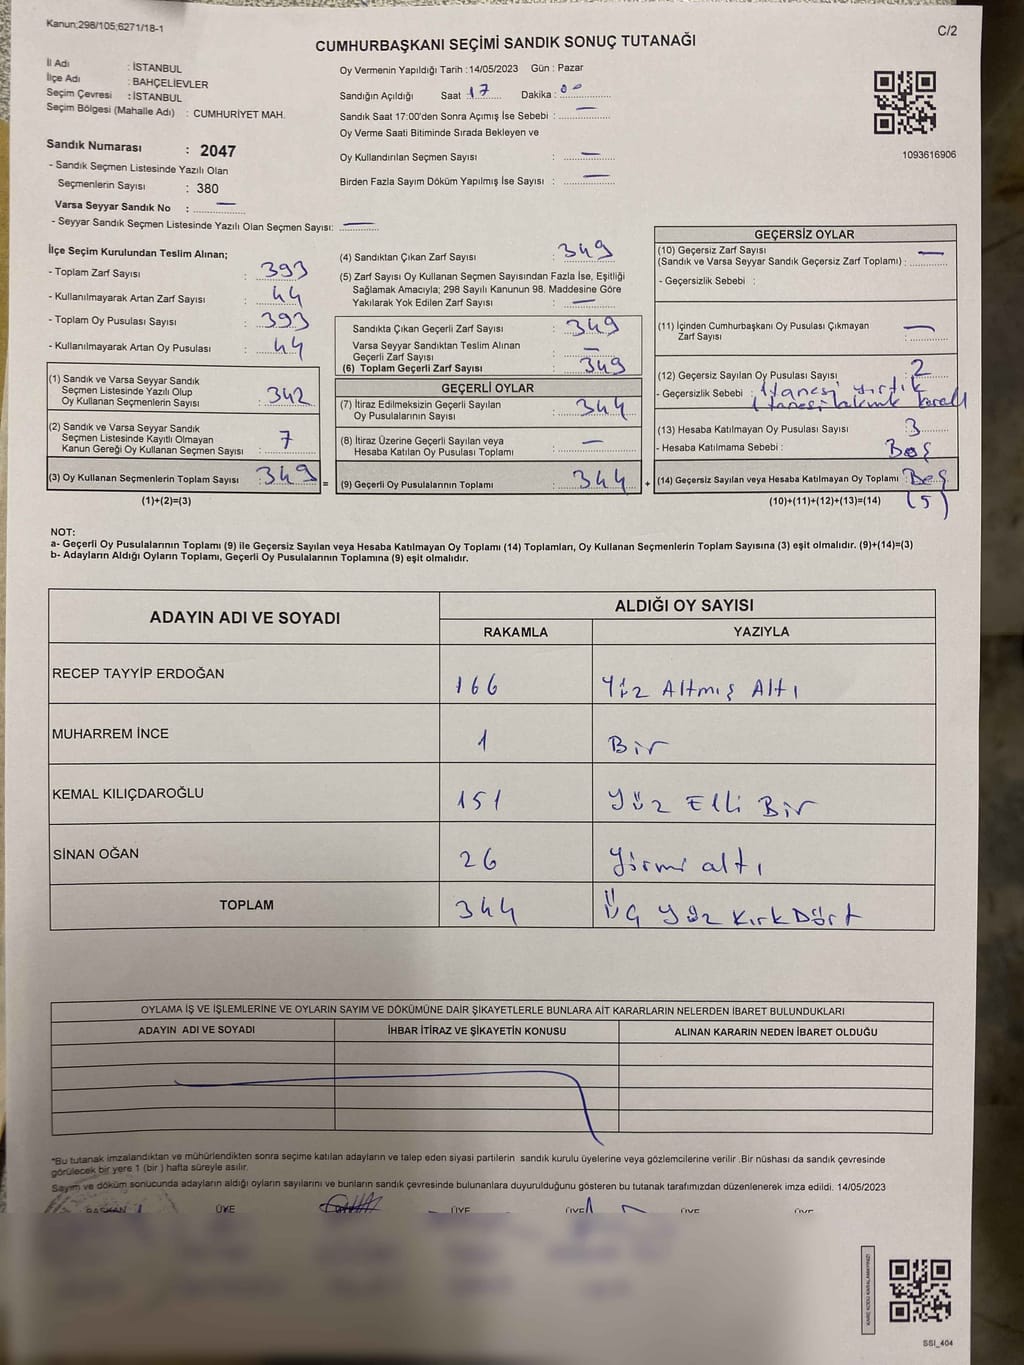 Kanun;298/105;6271/18-1
C/2
CUMHURBAŞKANI SEÇİMİ SANDIK SONUÇ TUTANAĞI
İl Adı : İSTANBUL
İlçe Adı : BAHÇELİEVLER
Seçim Çevresi : İSTANBUL
Seçim Bölgesi (Mahalle Adı) : CUMHURİYET MAH.
Sandık Numarası : 2047
- Sandık Seçmen Listesinde Yazılı Olan
Seçmenlerin Sayısı : 380
Varsa Seyyar Sandık No : —
- Seyyar Sandık Seçmen Listesinde Yazılı Olan Seçmen Sayısı: —
Oy Vermenin Yapıldığı Tarih :14/05/2023 Gün : Pazar
Sandığın Açıldığı Saat 17 Dakika : 00
Sandık Saat 17:00'den Sonra Açımış İse Sebebi : —
Oy Verme Saati Bitiminde Sırada Bekleyen ve
Oy Kullandırılan Seçmen Sayısı : —
Birden Fazla Sayım Döküm Yapılmış İse Sayısı : —
1093616906
İlçe Seçim Kurulundan Teslim Alınan;
- Toplam Zarf Sayısı : 393
- Kullanılmayarak Artan Zarf Sayısı : 44
- Toplam Oy Pusulası Sayısı : 393
- Kullanılmayarak Artan Oy Pusulası : 44
(1) Sandık ve Varsa Seyyar Sandık
Seçmen Listesinde Yazılı Olup
Oy Kullanan Seçmenlerin Sayısı : 342
(2) Sandık ve Varsa Seyyar Sandık
Seçmen Listesinde Kayıtlı Olmayan
Kanun Gereği Oy Kullanan Seçmen Sayısı : 7
(3) Oy Kullanan Seçmenlerin Toplam Sayısı : 349
(1)+(2)=(3)
(4) Sandıktan Çıkan Zarf Sayısı : 349
(5) Zarf Sayısı Oy Kullanan Seçmen Sayısından Fazla İse, Eşitliği
Sağlamak Amacıyla; 298 Sayılı Kanunun 98. Maddesine Göre
Yakılarak Yok Edilen Zarf Sayısı : —
Sandıkta Çıkan Geçerli Zarf Sayısı : 349
Varsa Seyyar Sandıktan Teslim Alınan
Geçerli Zarf Sayısı : —
(6) Toplam Geçerli Zarf Sayısı : 349
GEÇERLİ OYLAR
(7) İtiraz Edilmeksizin Geçerli Sayılan
Oy Pusulalarının Sayısı : 344
(8) İtiraz Üzerine Geçerli Sayılan veya
Hesaba Katılan Oy Pusulası Toplamı : —
= (9) Geçerli Oy Pusulalarının Toplamı : 344 +
GEÇERSİZ OYLAR
(10) Geçersiz Zarf Sayısı
(Sandık ve Varsa Seyyar Sandık Geçersiz Zarf Toplamı) : —
- Geçersizlik Sebebi :
(11) İçinden Cumhurbaşkanı Oy Pusulası Çıkmayan
Zarf Sayısı : —
(12) Geçersiz Sayılan Oy Pusulası Sayısı : 2
- Geçersizlik Sebebi : 1 tanesi yırtık
1 tanesi
(13) Hesaba Katılmayan Oy Pusulası Sayısı : 3
- Hesaba Katılmama Sebebi : Boş
(14) Geçersiz Sayılan veya Hesaba Katılmayan Oy Toplamı : Beş
(10)+(11)+(12)+(13)=(14) (5)
NOT:
a- Geçerli Oy Pusulalarının Toplamı (9) ile Geçersiz Sayılan veya Hesaba Katılmayan Oy Toplamı (14) Toplamları, Oy Kullanan Seçmenlerin Toplam Sayısına (3) eşit olmalıdır. (9)+(14)=(3)
b- Adayların Aldığı Oyların Toplamı, Geçerli Oy Pusulalarının Toplamına (9) eşit olmalıdır.
ADAYIN ADI VE SOYADI
ALDIĞI OY SAYISI
RAKAMLA YAZIYLA
RECEP TAYYİP ERDOĞAN 166 Yüz Altmış Altı
MUHARREM İNCE 1 Bir
KEMAL KILIÇDAROĞLU 151 Yüz Elli Bir
SİNAN OĞAN 26 Yirmi altı
TOPLAM 344 Üç Yüz Kırk Dört
OYLAMA İŞ VE İŞLEMLERİNE VE OYLARIN SAYIM VE DÖKÜMÜNE DAİR ŞİKAYETLERLE BUNLARA AİT KARARLARIN NELERDEN İBARET BULUNDUKLARI
ADAYIN ADI VE SOYADI İHBAR İTİRAZ VE ŞİKAYETİN KONUSU ALINAN KARARIN NEDEN İBARET OLDUĞU
*Bu tutanak imzalandıktan ve mühürlendikten sonra seçime katılan adayların ve talep eden siyasi partilerin sandık kurulu üyelerine veya gözlemcilerine verilir .Bir nüshası da sandık çevresinde
görülecek bir yere 1 (bir ) hafta süreyle asılır.
Sayım ve döküm sonucunda adayların aldığı oyların sayılarını ve bunların sandık çevresinde bulunanlara duyurulduğunu gösteren bu tutanak tarafımızdan düzenlenerek imza edildi. 14/05/2023
BAŞKAN ÜYE ÜYE ÜYE ÜYE ÜYE
SSI_404